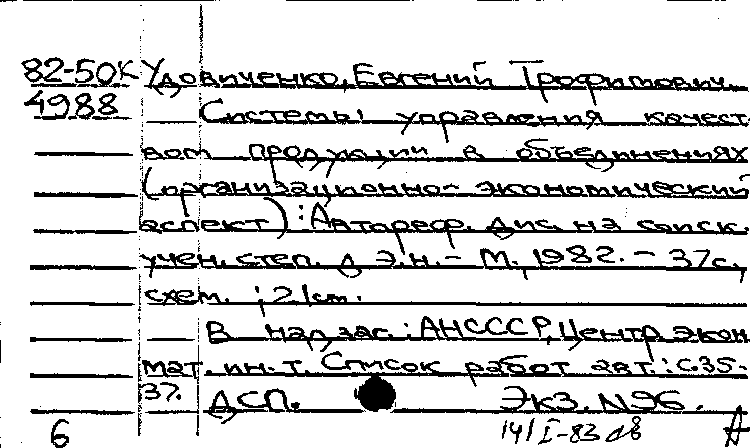 82-50К Удовиченко, Евгений Трофимович
4988 Системы управления качест
вом продукции в объединениях
(организационно-экономический
аспект) : Автореф. дис. на соиск.
учен. степ. д. э.н. - М., 1982. - 37с.,
схем. ; 21см.
В надзаг.: АН СССР, Центр. экон.
мат. ин-т. Список работ авт.: с.35-
37.
ДСП. Экз. N96.
6 141 I-83 А